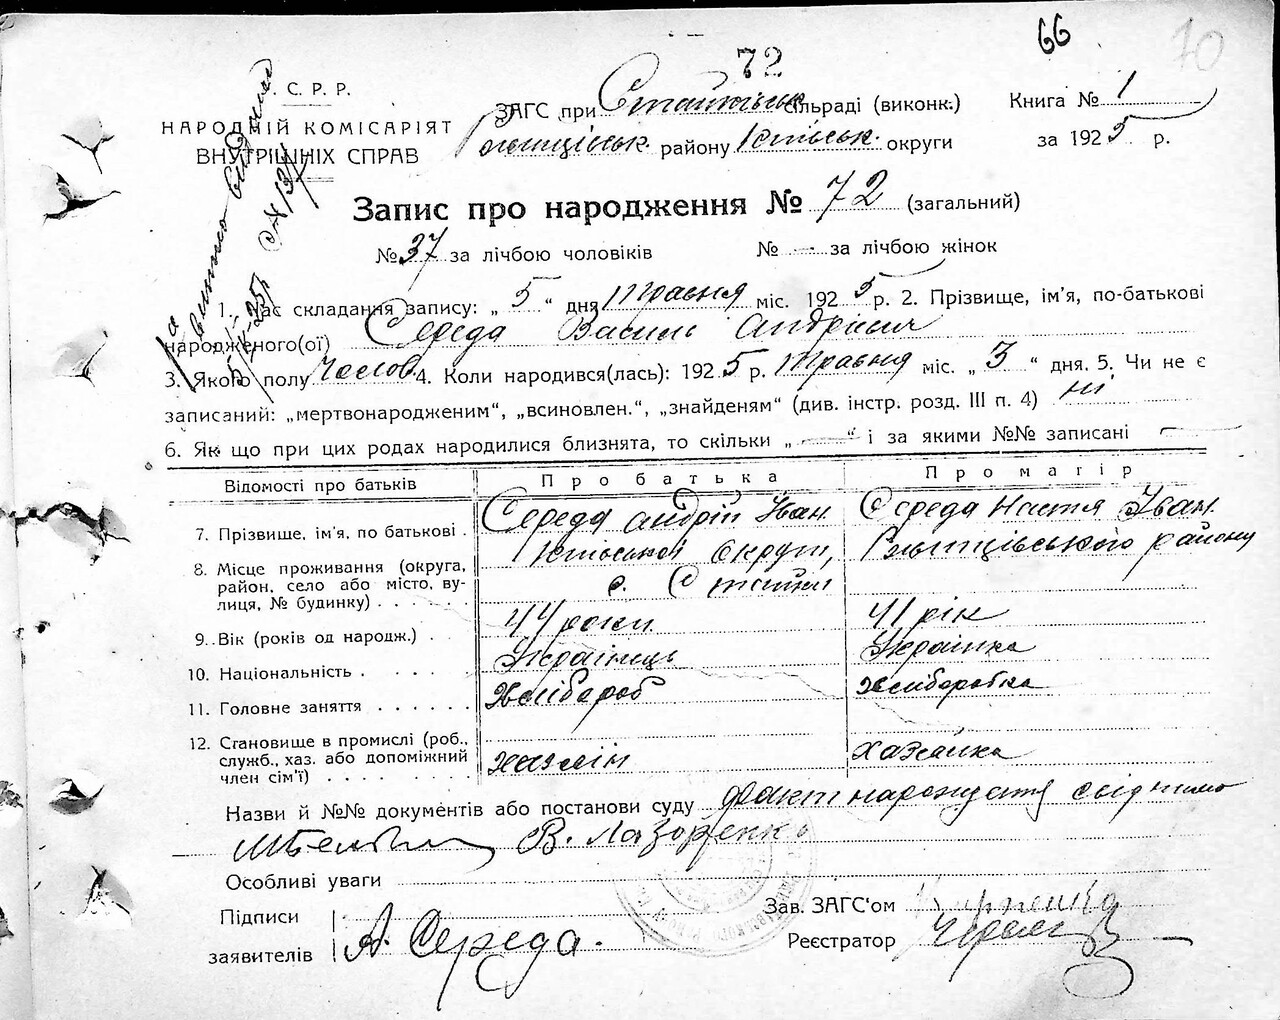 66
70
72
. С. Р. Р.
НАРОДНІЙ КОМІСАРІЯТ
ВНУТРІШНІХ СПРАВ
ЗАГС при Стайківськ сільраді (виконк.)
району округи
Книга № 1
за 1925 р.
Запис про народження № 72 (загальний)
№ 37 за лічбою чоловіків № — за лічбою жінок
1. Час складання запису: „ 5 “ дня травня міс. 1925 р. 2. Прізвище, ім'я, по-батькові
народженого(ої) Середа Василь Андрієвич
3. Якого полу чолов 4. Коли народився(лась): 1925 р. травня міс. „ 3 “ дня. 5. Чи не є
записаний: „мертвонародженим“, „всиновлен.“, „знайденям“ (див. інстр. розд. III п. 4) ні
6. Як що при цих родах народилися близнята, то скільки „ — “ і за якими №№ записані —
Відомості про батьків Про батька Про матір
7. Прізвище, ім'я, по батькові . Середа Андрій Іван. Середа Настя Іван.
8. Місце проживання (округа, район, село або місто, вулиця, № будинку) округи, району
с. Стайки
9. Вік (років од народж.) . . 44 роки 41 рік
10. Національність . . . . . Українець Українка
11. Головне заняття . . . . . . Хлібороб Хлiборобка
12. Становище в промислі (роб., служб., хаз. або допоміжний член сім'ї) . . . . . . . . хазяїн хазяйка
Назви й №№ документів або постанови суду факт народження свідчит
В. Лазоренко
Особливі уваги
Підписи
заявителів А. Середа.
Зав. ЗАГС'ом
Реєстратор